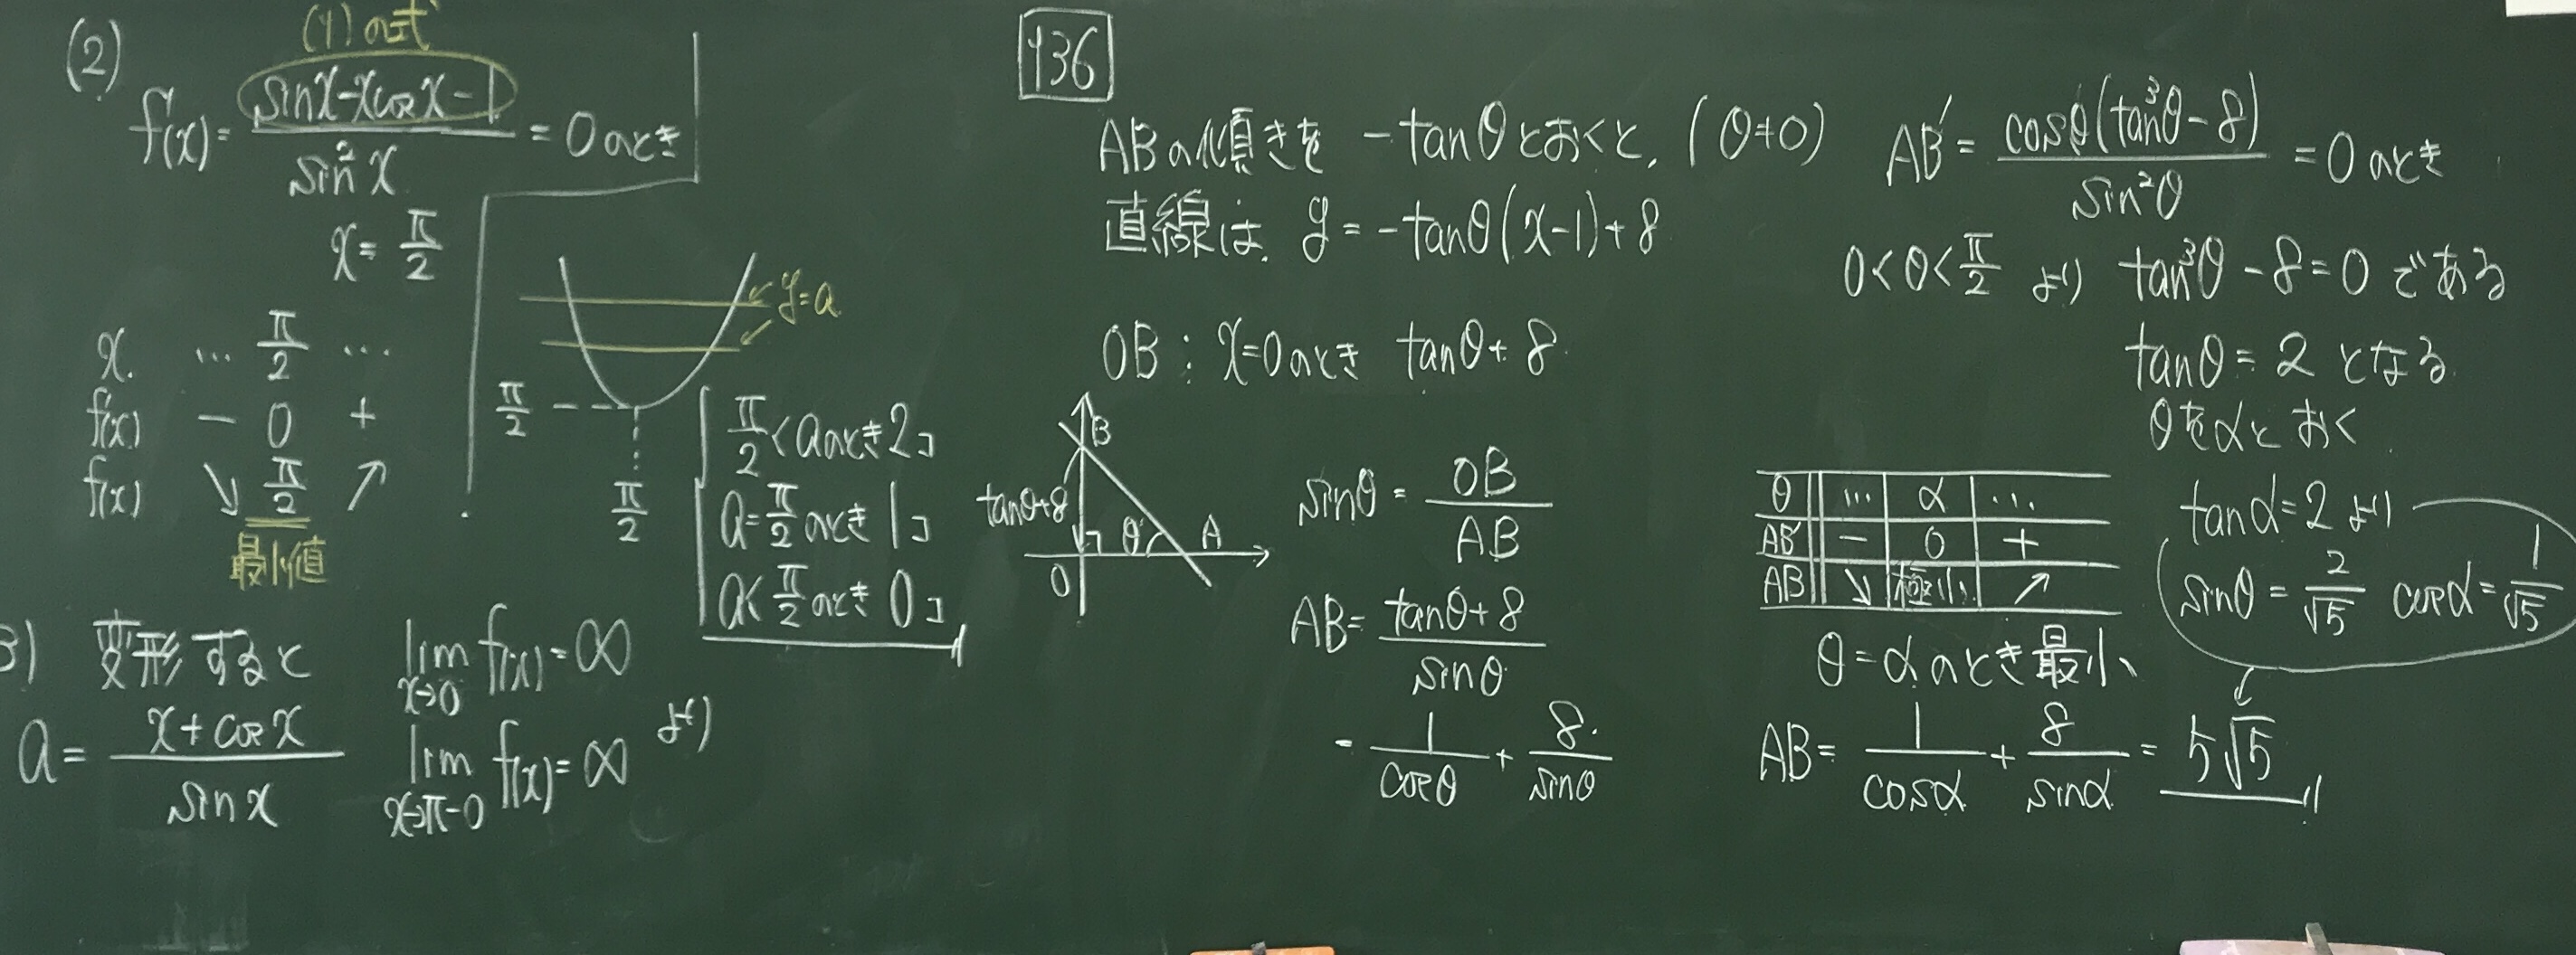 (2)
(1)の式
f'(x)= (sinx-xcosx-1)/(sin²x) = 0 のとき
x= π/2
x ... π/2 ...
f'(x) - 0 +
f(x) ↘ π/2 ↗
最小値
y=a
π/2
π/2
π/2<aのとき2コ
a=π/2のとき1コ
a<π/2のとき0コ
3) 変形すると
a= (x+cosx)/(sinx)
lim x→0 f(x)=∞
lim x→π-0 f(x)=∞ より
136
ABの傾きを -tanθとおくと, (θ≠0)
直線は, y=-tanθ(x-1)+8
OB : x=0のとき tanθ+8
B
tanθ+8
θ
A
O
sinθ = OB/AB
AB= (tanθ+8)/(sinθ)
= 1/cosθ + 8/sinθ
AB'= (cosθ(tan³θ-8))/(sin²θ) =0 のとき
0<θ<π/2 より tan³θ-8=0 である
tanθ=2 となる
θをαとおく
θ ... α ...
AB' - 0 +
AB ↘ 極小 ↗
tanα=2より
sinθ= 2/√5 cosα= 1/√5
θ=αのとき最小
AB= 1/cosα + 8/sinα = 5√5